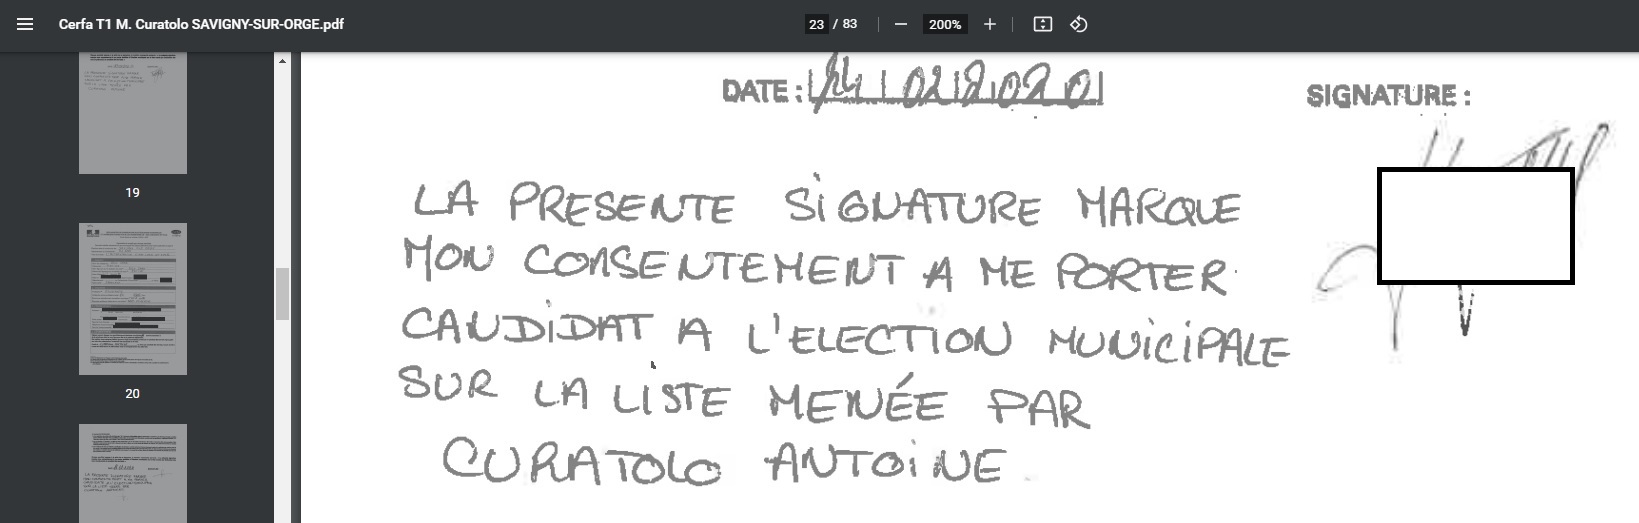 Cerfa T1 M. Curatolo SAVIGNY-SUR-ORGE.pdf
23 / 83
200%
19
20
DATE : 24 02 2020
SIGNATURE :
LA PRESENTE SIGNATURE MARQUE
MON CONSENTEMENT A ME PORTER
CANDIDAT A L'ELECTION MUNICIPALE
SUR LA LISTE MENÉE PAR
CURATOLO ANTOINE